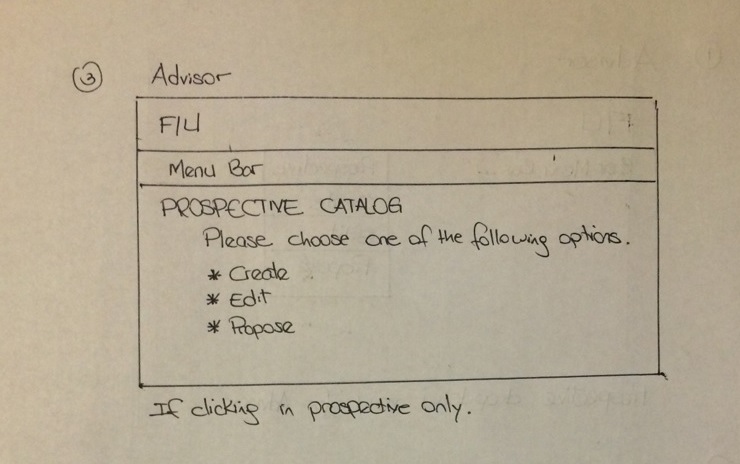 ③ Advisor
FIU
Menu Bar
PROSPECTIVE CATALOG
Please choose one of the following options.
* Create
* Edit
* Propose
If clicking in prospective only.